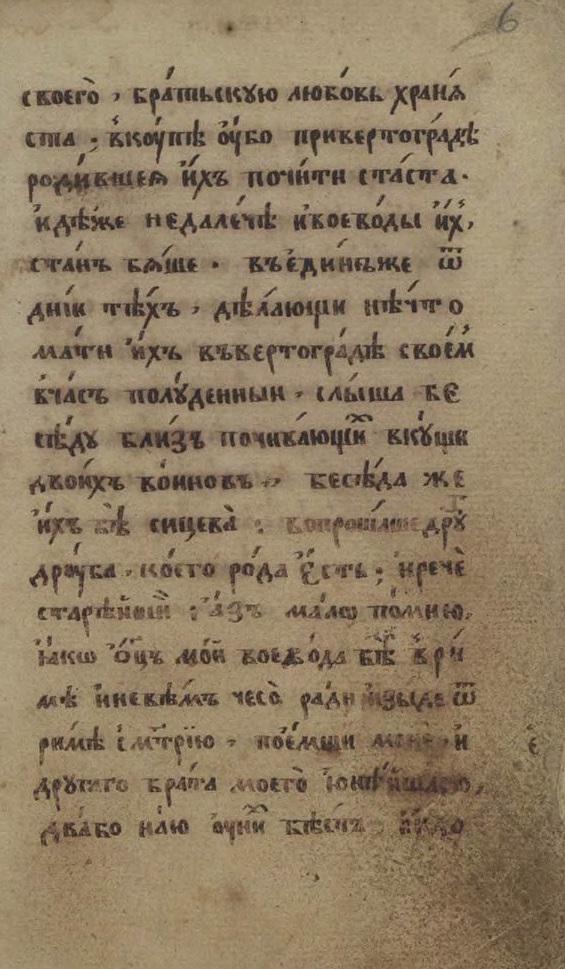 6
своего̀ , бра́тьскую любо́вь храня́
ста . вкꙋ́пѣ ᲂу҆́бо привертогра́дѣ
роди́вшеѧ и҆́хъ почи́ти ста́ста .
и҆дѣ́же недале́чѣ ивоево́ды и҆́х ,
ста́нъ бѧ́ше . въеди́нъже ѿ
дні́и тѣ́хъ , дѣ́лающи нѣ́что
ма́ти и҆́хъ въвертогра́дѣ свое́м
вча́съ полу́денныи , слы́ша бе
сѣ́ду бли́зъ почива́ющїи вку́щи
двои́хъ во́иновъ , бесѣ́да же
и҆́хъ бѣ̀ сицева̀ : вопроша́ше дрꙋ́
дрꙋ́га , ко́его ро́да є҆́сть ; и҆речѐ
старѣ́йшїй : а҆́зъ ма́лѡ по́мню ,
ꙗ҆́кѡ ѻ҆ц҃ъ мо́й воево́да бѣ̀ в ри́
мѣ и҆невѣ́мъ чесо̀ ра́ди и҆зы́де ѿ
ри́ма с ма́терїю , пое́мши менѐ , и҆
дрꙋга́го бра́та моего̀ ю҆нѣ́йшаго ,
два́бо на́ю